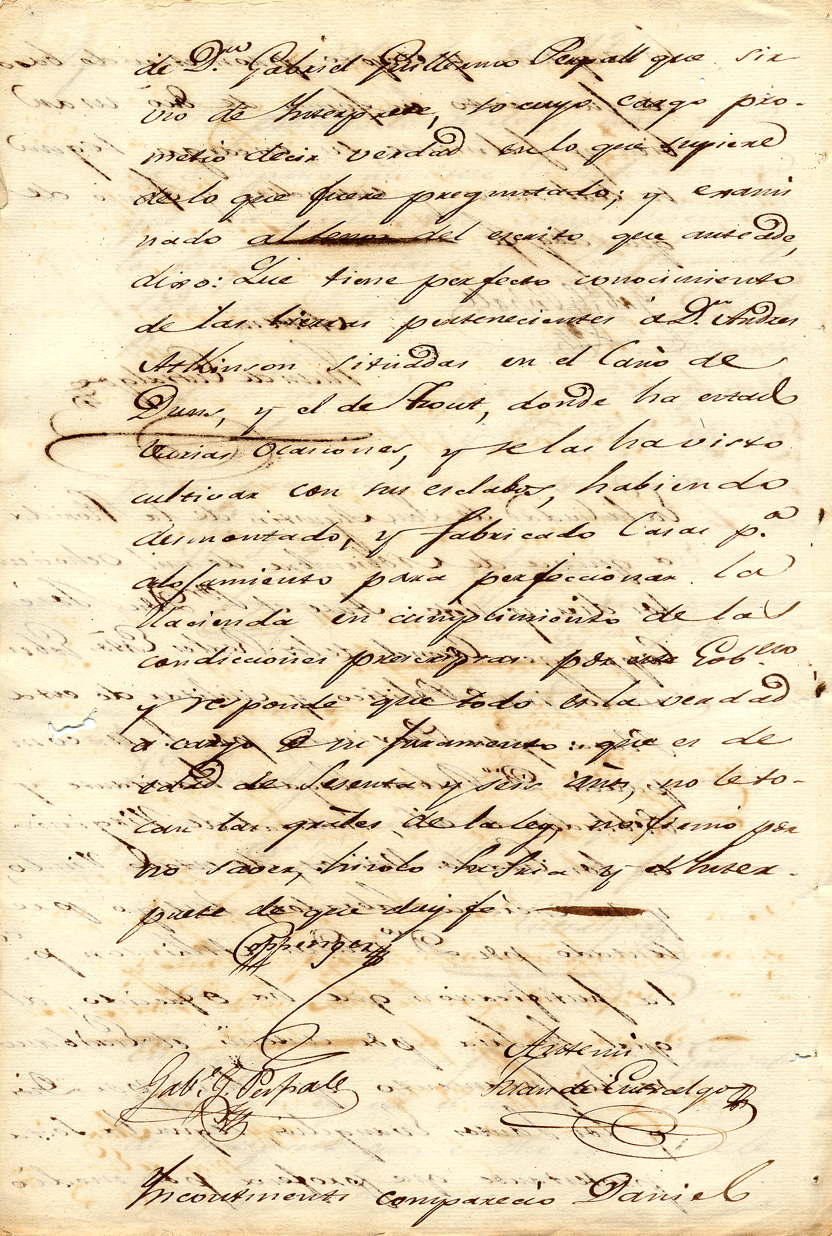 de D.n Gabriel Guillermo Perpall que sir
vio de Interprete, so cuyo cargo pro-
metió decir verdad en lo que supiere
de lo que fuere preguntado; y exami
nado al tenor del escrito que antecede,
dixo: Que tiene perfecto conocimiento
de las tierras pertenecientes á D.n Andres
Atkinson situadas en el Caño de
Duns, y el de Trout, donde ha estado
varias ocasiones, y se las ha visto
cultivar con sus esclabos, habiendo
desmontado, y fabricado Casas p.a
alojamiento para perfeccionar la
Hacienda en cumplimiento de las
condiciones prescriptas por este Gob.erno
y responde que todo es la verdad
a cargo de su juramento: que es de
edad de sesenta y seis años, no le to-
can las grāles, de la ley, no firmó por
no saver, hizolo Su Sria y el Inter-
prete de que doy fé
Coppinger
Gab.l G. Perpall
Antemi
Juan de Entralgo
Incontinenti comparecio Daniel